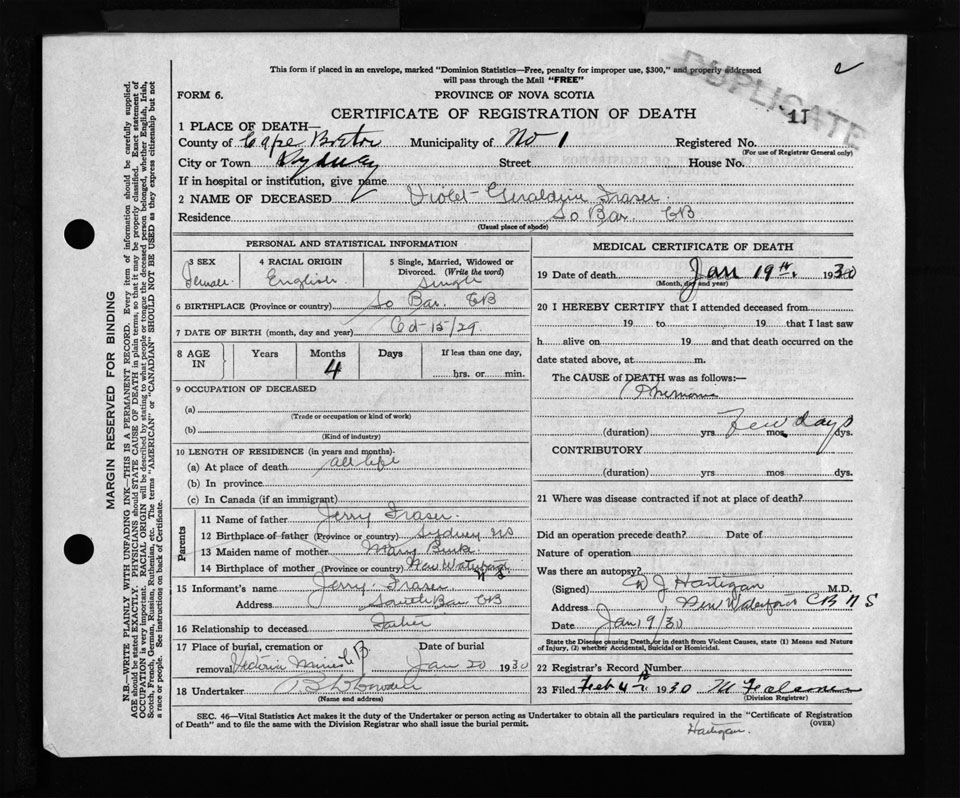 This form if placed in an envelope, marked "Dominion Statistics—Free, penalty for improper use, $300," and properly addressed
will pass through the Mail "FREE"
DUPLICATE
FORM 6.
PROVINCE OF NOVA SCOTIA
CERTIFICATE OF REGISTRATION OF DEATH
1J
1 PLACE OF DEATH—
County of Cape Breton Municipality of No 1 Registered No.
(For use of Registrar General only)
City or Town Sydney Street House No.
If in hospital or institution, give name
2 NAME OF DECEASED Violet Geraldine Fraser
Residence So Bar. CB
(Usual place of abode)
PERSONAL AND STATISTICAL INFORMATION
3 SEX Female
4 RACIAL ORIGIN English
5 Single, Married, Widowed or Divorced. (Write the word) Single
6 BIRTHPLACE (Province or country) So Bar. CB
7 DATE OF BIRTH (month, day and year) Oct-15/29
8 AGE IN Years Months 4 Days If less than one day, hrs. or min.
9 OCCUPATION OF DECEASED
(a)
(Trade or occupation or kind of work)
(b)
(Kind of industry)
10 LENGTH OF RESIDENCE (in years and months)-
(a) At place of death all life
(b) In province
(c) In Canada (if an immigrant)
Parents
11 Name of father Jerry Fraser
12 Birthplace of father (Province or country) Sydney NS
13 Maiden name of mother Mary Burke
14 Birthplace of mother (Province or country) New Waterford N S
15 Informant's name Jerry Fraser
Address South Bar CB
16 Relationship to deceased Father
17 Place of burial, cremation or removal Victoria Mines CB
Date of burial Jan 20 1930
18 Undertaker
(Name and address)
MEDICAL CERTIFICATE OF DEATH
19 Date of death Jan 19th. 1930
(Month, day and year)
20 I HEREBY CERTIFY that I attended deceased from
19 to 19 that I last saw
h alive on 19 and that death occurred on the
date stated above, at m.
The CAUSE of DEATH was as follows:—
Pneumonia
(duration) yrs. mos. dys. Few days
CONTRIBUTORY
(duration) yrs. mos. dys.
21 Where was disease contracted if not at place of death?
Did an operation precede death? Date of
Nature of operation
Was there an autopsy?
(Signed) J Hartigan M.D.
Address New Waterford CB N S
Date Jan 19/30
State the Disease causing Death, or in death from Violent Causes, state (1) Means and Nature of Injury, (2) whether Accidental, Suicidal or Homicidal.
22 Registrar's Record Number
23 Filed Feb 4th 1930
(Division Registrar)
SEC. 46—Vital Statistics Act makes it the duty of the Undertaker or person acting as Undertaker to obtain all the particulars required in the "Certificate of Registration
of Death" and to file the same with the Division Registrar who shall issue the burial permit. (OVER)
Hartigan.
MARGIN RESERVED FOR BINDING
N.B.—WRITE PLAINLY WITH UNFADING INK—THIS IS A PERMANENT RECORD. Every item of information should be carefully supplied.
AGE should be stated EXACTLY. PHYSICIANS should STATE CAUSE OF DEATH in plain terms, so that it may be properly classified. Exact statement of
OCCUPATION is very important. RACIAL ORIGIN will be described by stating to what people or tongue the deceased person belonged, whether English, Irish,
Scotch, French, German, Russian, Ruthenian, etc. The terms "AMERICAN" or "CANADIAN" SHOULD NOT BE USED as they express citizenship but not
a race or people. See instructions on back of Certificate.